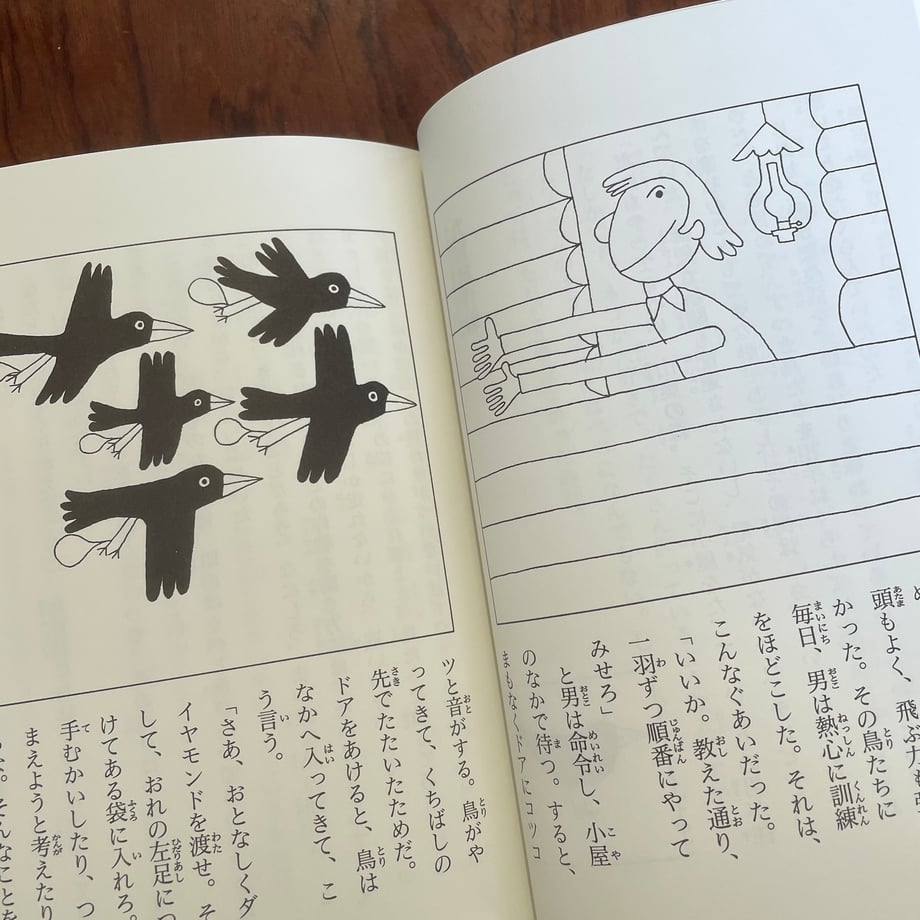 頭もよく、飛ぶ力も
かった。その鳥たちに
毎日、男は熱心に訓練
をほどこした。それは、
こんなぐあいだった。
「いいか。教えた通り、
一羽ずつ順番にやって
みせろ」
と男は命令し、小屋
のなかで待つ。すると、
まもなくドアにコツコ
ツと音がする。鳥がや
ってきて、くちばしの
先でたたいたためだ。
ドアをあけると、鳥は
なかへ入ってきて、こ
う言う。
「さあ、おとなしくダ
イヤモンドを渡せ。そ
して、おれの左足につ
けてある袋に入れろ。
手むかいしたり、つ
まえようと考えたり
そんなことを